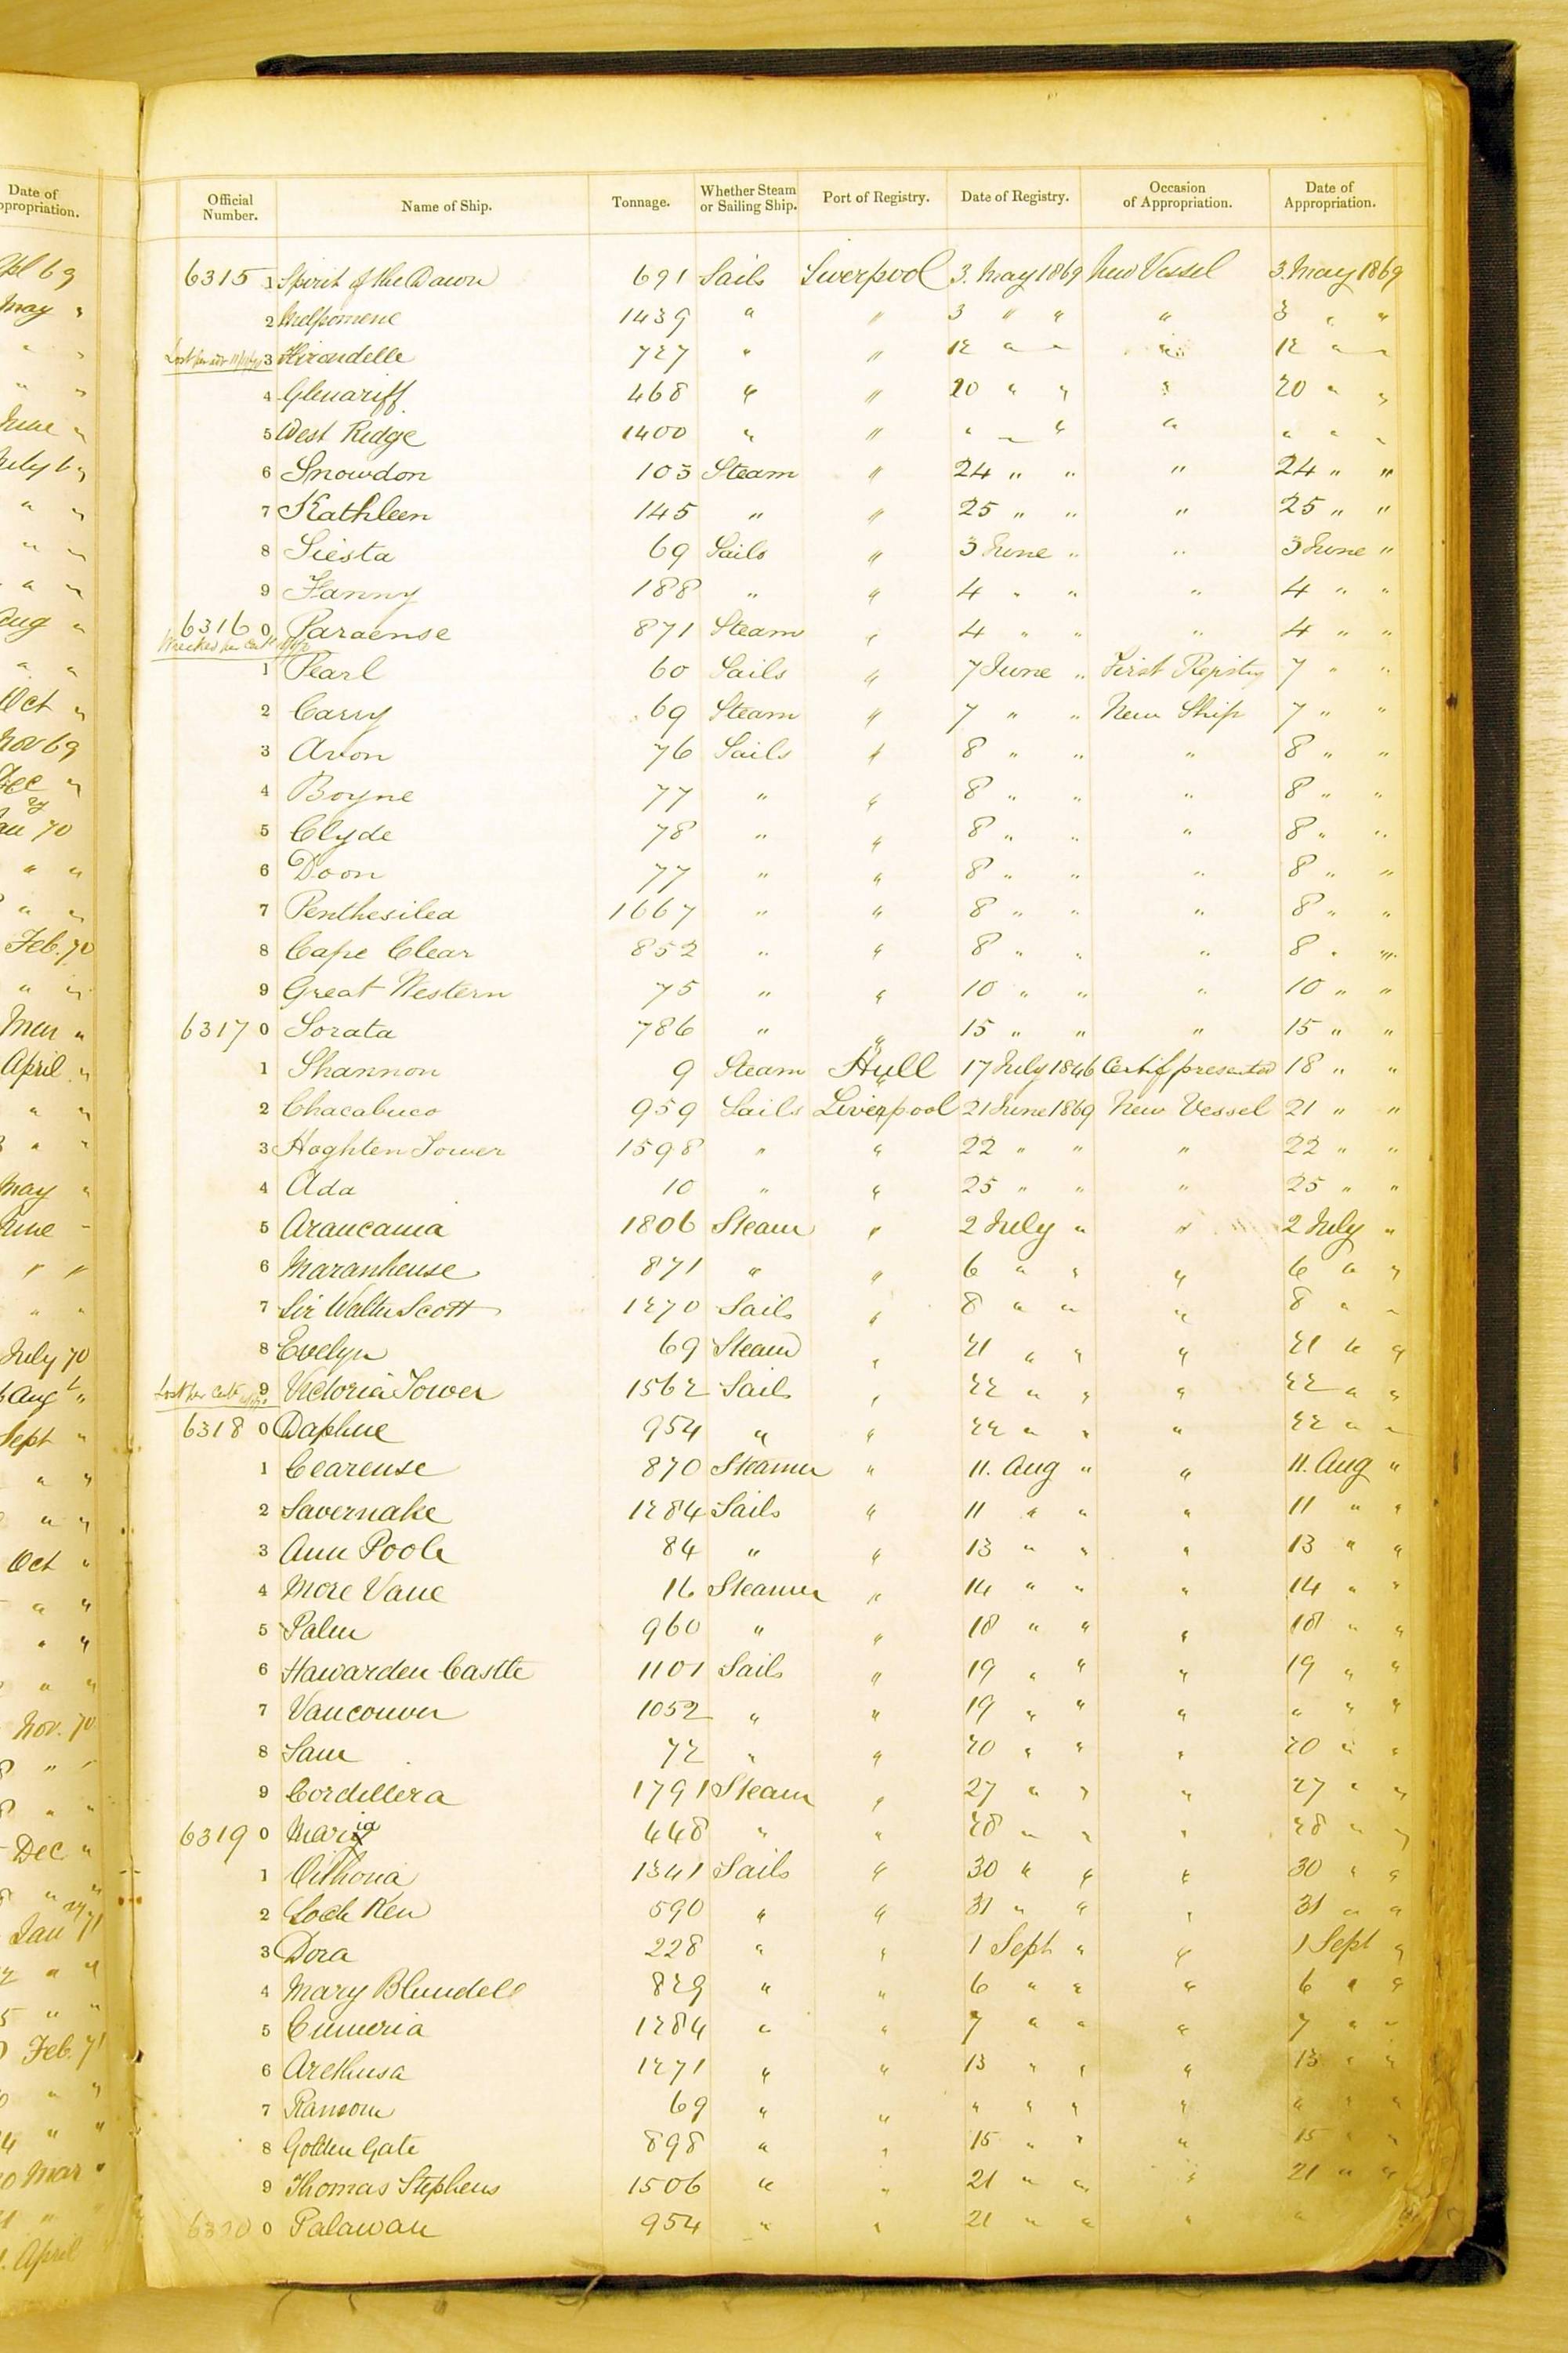 Date of
ppropriation.
Official Number.
Name of Ship.
Tonnage.
Whether Steam or Sailing Ship.
Port of Registry.
Date of Registry.
Occasion of Appropriation.
Date of Appropriation.
6315 1 Spirit of the Dawn 691 Sails Liverpool 3. May 1869 New Vessel 3. May 1869
2 Melpomene 1439 " " 3 " " " 3 " "
Lost per 3 Hirondelle 727 " " 12 " " " 12 " "
4 Glenariff 468 " " 20 " " " 20 " "
5 West Ridge 1400 " " " " " " " "
6 Snowdon 103 Steam " 24 " " " 24 " "
7 Kathleen 145 " " 25 " " " 25 " "
8 Siesta 69 Sails " 3 June " " 3 June "
9 Fanny 188 " " 4 " " " 4 " "
6316 0 Paraense 871 Steam " 4 " " " 4 " "
Wrecked per Cert
1 Pearl 60 Sails " 7 June " First Registry 7 " "
2 Carry 69 Steam " 7 " " New Ship 7 " "
3 Avon 76 Sails " 8 " " " 8 " "
4 Boyne 77 " " 8 " " " 8 " "
5 Clyde 78 " " 8 " " " 8 " "
6 Doon 77 " " 8 " " " 8 " "
7 Penthesilea 1667 " " 8 " " " 8 " "
8 Cape Clear 852 " " 8 " " " 8 " "
9 Great Western 75 " " 10 " " " 10 " "
6317 0 Sorata 786 " " 15 " " " 15 " "
1 Shannon 9 Steam Hull 17 July 1846 Certif presented 18 " "
2 Chacabuco 959 Sails Liverpool 21 June 1869 New Vessel 21 " "
3 Hoghten Tower 1598 " " 22 " " " 22 " "
4 Ada 10 " " 25 " " " 25 " "
5 Araucania 1806 Steam " 2 July " " 2 July "
6 Maranhense 871 " " 6 " " " 6 " "
7 Sir Walter Scott 1270 Sails " 8 " " " 8 " "
8 Evelyn 69 Steam " 21 " " " 21 " "
Lost per Cert 9 Victoria Tower 1562 Sails " 22 " " " 22 " "
6318 0 Daphne 954 " " 22 " " " 22 " "
1 Cearense 870 Steamer " 11. Aug " " 11. Aug "
2 Savernake 1284 Sails " 11 " " " 11 " "
3 Ann Poole 84 " " 13 " " " 13 " "
4 More Vane 16 Steamer " 14 " " " 14 " "
5 Palm 960 " " 18 " " " 18 " "
6 Hawarden Castle 1101 Sails " 19 " " " 19 " "
7 Vancouver 1052 " " 19 " " " " " "
8 Sam 72 " " 20 " " " 20 " "
9 Cordillera 1791 Steam " 27 " " " 27 " "
6319 0 Maria 448 " " 28 " " " 28 " "
1 Oithona 1341 Sails " 30 " " " 30 " "
2 Loch Ken 590 " " 31 " " " 31 " "
3 Dora 228 " " 1 Sept " " 1 Sept "
4 Mary Blundell 829 " " 6 " " " 6 " "
5 Cumeria 1284 " " 7 " " " 7 " "
6 Arethusa 1271 " " 13 " " " 13 " "
7 Ransom 69 " " " " " " " " "
8 Golden Gate 898 " " 15 " " " 15 " "
9 Thomas Stephens 1506 " " 21 " " " 21 " "
6320 0 Palawan 954 " " 21 " " " "